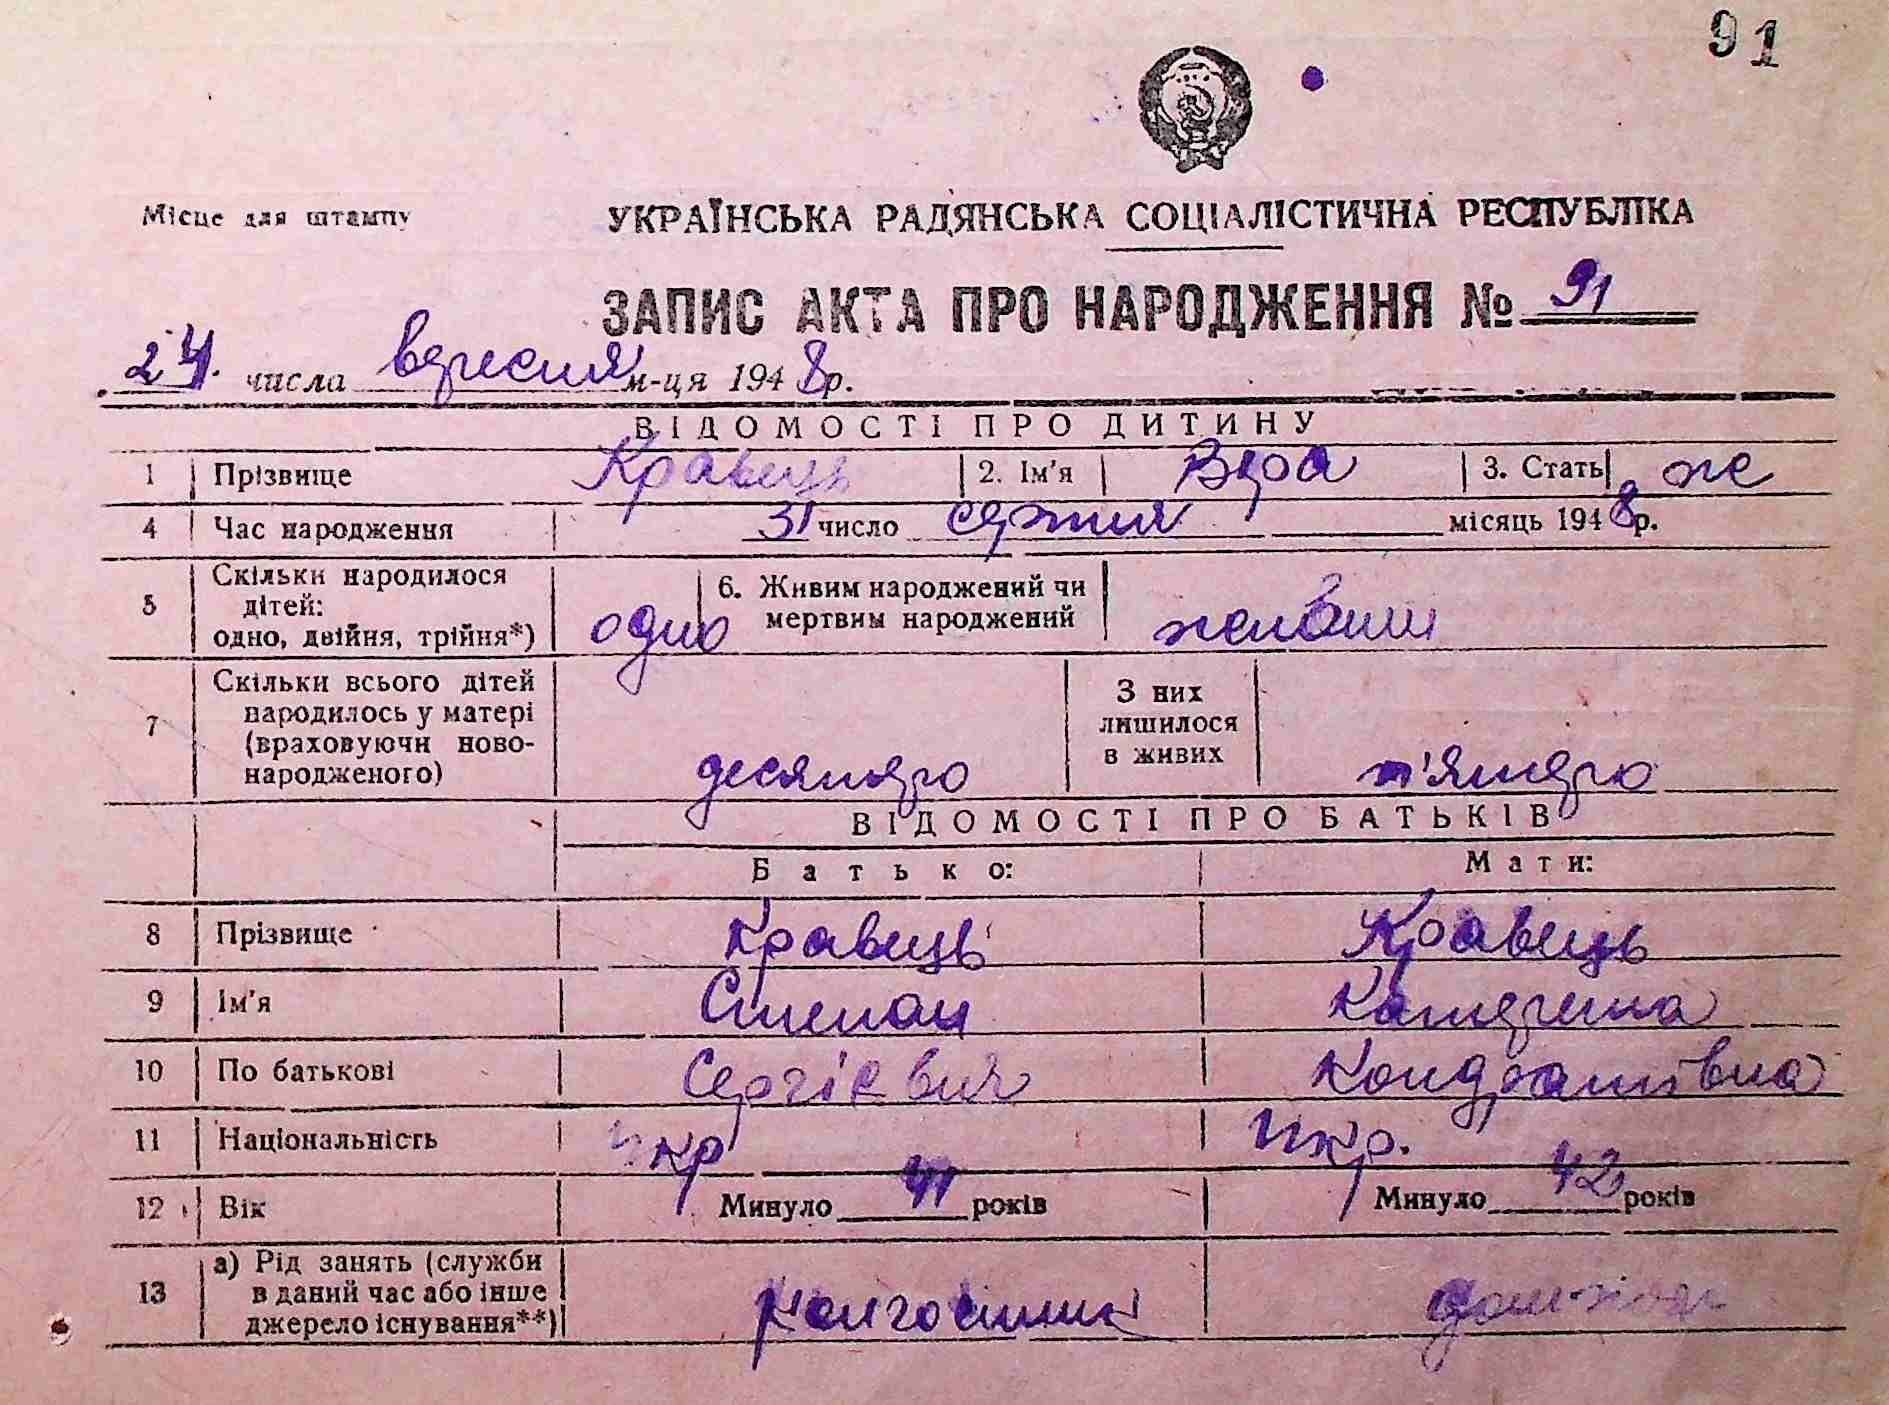 91
Місце для штампу
УКРАЇНСЬКА РАДЯНСЬКА СОЦІАЛІСТИЧНА РЕСПУБЛІКА
ЗАПИС АКТА ПРО НАРОДЖЕННЯ № 91
24. числа вересня м-ця 1948р.
ВІДОМОСТІ ПРО ДИТИНУ
1 Прізвище Кравець 2. Ім'я Вера 3. Стать же
4 Час народження 31 число серпня місяць 1948р.
5 Скільки народилося дітей: одно, двійня, трійня*) одно 6. Живим народжений чи мертвим народжений
7 Скільки всього дітей народилось у матері (враховуючи ново-народженого) десятеро З них лишилося в живих п'ятеро
ВІДОМОСТІ ПРО БАТЬКІВ
Батько: Мати:
8 Прізвище Кравець Кравець
9 Ім'я Степан Катерина
10 По батькові Сергієвич Кондратівна
11 Національність Укр Укр.
12 Вік Минуло 41 років Минуло 42 років
13 а) Рід занять (служби в даний час або інше джерело існування**) колгоспник